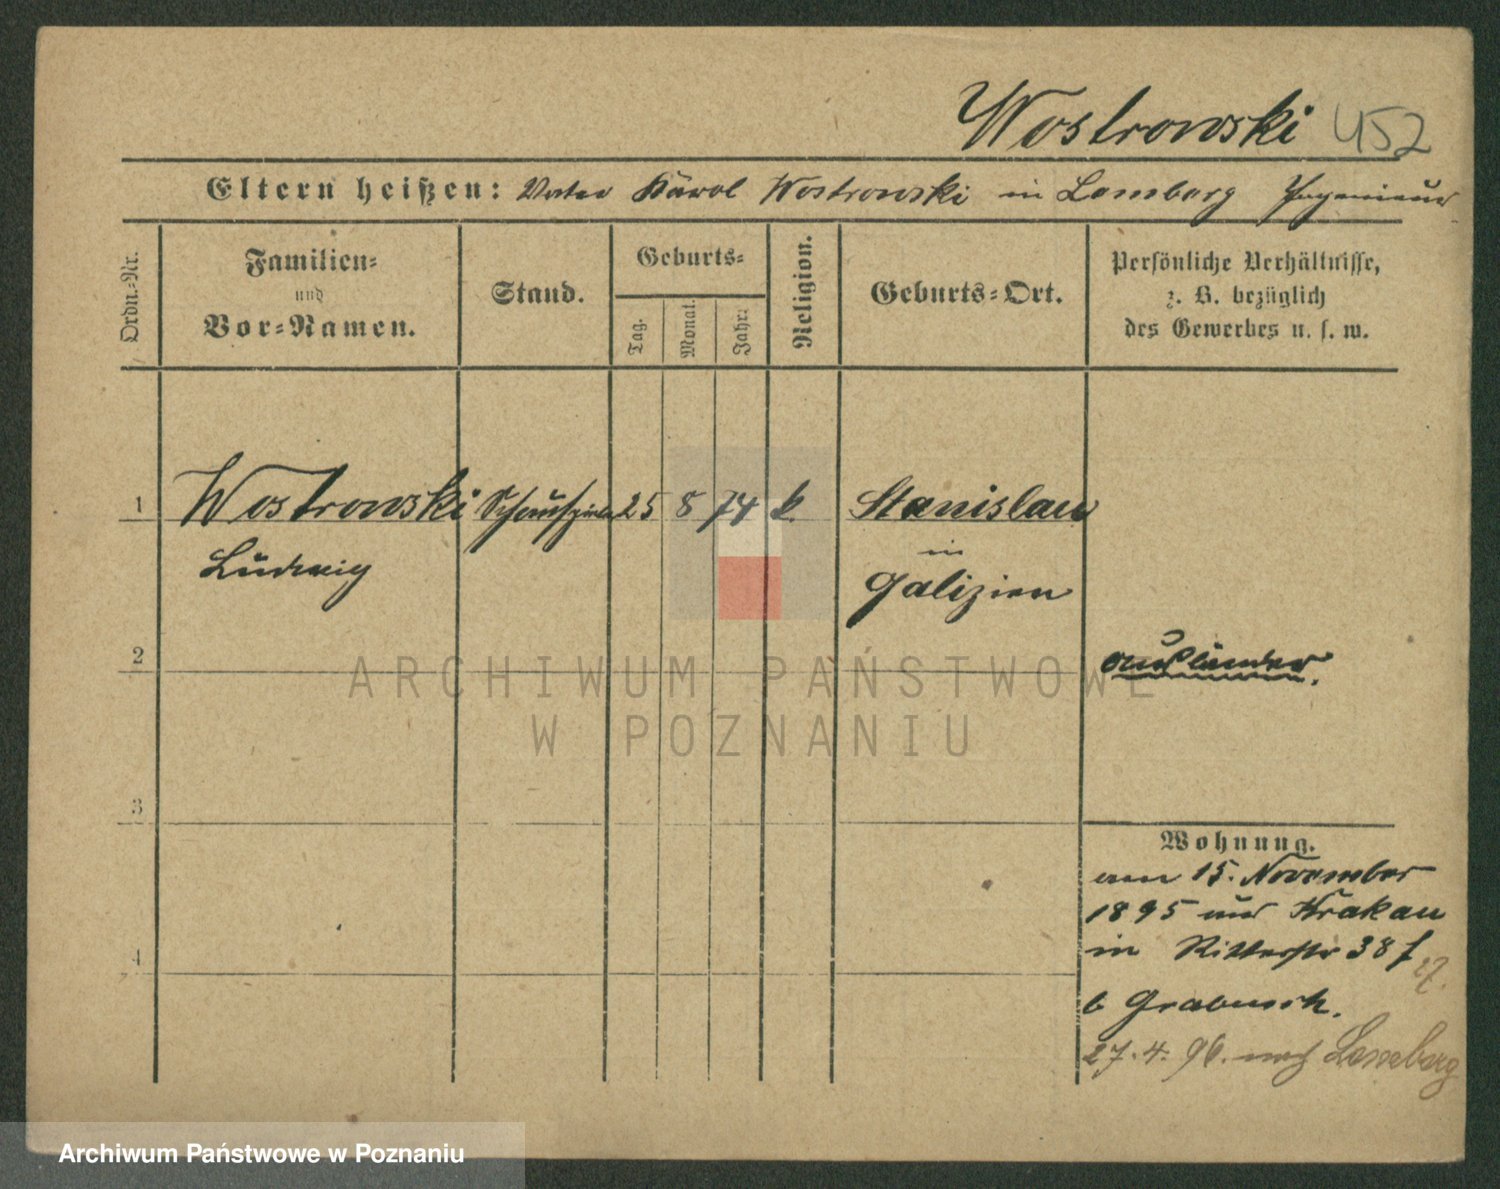 Wostrowski 452
Eltern heißen: Vater Karol Wostrowski in Lemberg Ingenieur
Ordn.-Nr.
Familien-
und
Vor-Namen.
Stand.
Geburts-
Tag.
Monat.
Jahr:
Religion.
Geburts-Ort.
Persönliche Verhältnisse,
z. B. bezüglich
des Gewerbes u. s. w.
1 Wostrowski Schauspieler 25 8 74 k. Stanislau
Ludwig
in
Galizien
2
Ausländer.
ARCHIWUM PAŃSTWOWE
W POZNANIU
3
Wohnung.
am 15. November
1895 aus Krakau
in Ritterstr 38
4
b
27.4.96. nach Lemberg
Archiwum Państwowe w Poznaniu